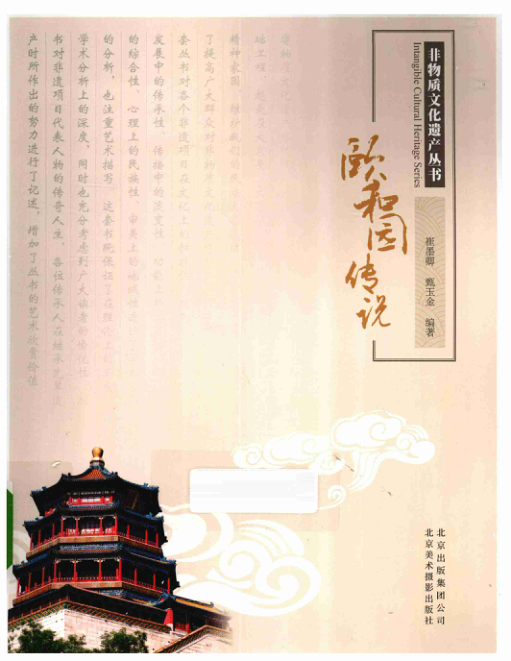 非物质文化遗产丛书
Intangible Cultural Heritage Series
颐和园传说
崔墨卿 甄玉金 编著
精神家园
了提高广大群众对
套丛书对各个非遗项目在文化上的
发展中的传承性、传播中的演变性、功能上
的综合性、心理上的民族性、审美上的地域性
的分析，也注重艺术描写，这套书既保证了在理论上
学术分析上的深度，同时也充分考虑到广大读者的
书对非遗项目代表人物的传奇人生，各位传承人在继承
产时所作出的努力进行了记述，增加了丛书的艺术欣赏价值
北京出版集团公司
北京美术摄影出版社